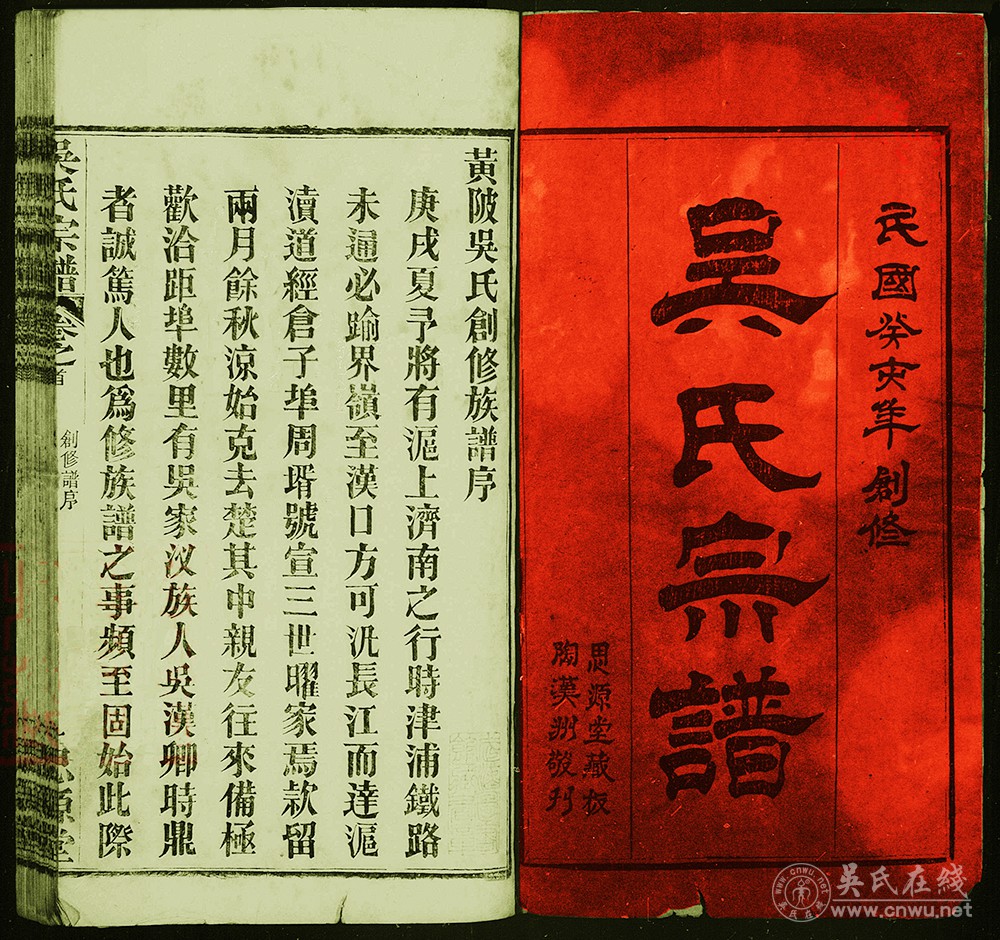 民國癸亥年創修
吳氏宗譜
思源堂藏板
陶漢州敬刋
黃陂吳氏創修族譜序
庚戌夏予將有滬上濟南之行時津浦鐵路
未通必踰界嶺至漢口方可汎長江而達滬
瀆道經倉子埠周壻號宣三世曜家焉款留
兩月餘秋涼始克去楚其中親友往來備極
歡洽距埠數里有吳家汊族人吳漢卿時鼎
者誠篤人也爲修族譜之事頻至固始此際
吳氏宗譜
卷之首
創修譜序
思源堂
吴氏在线
www.cnwu.net